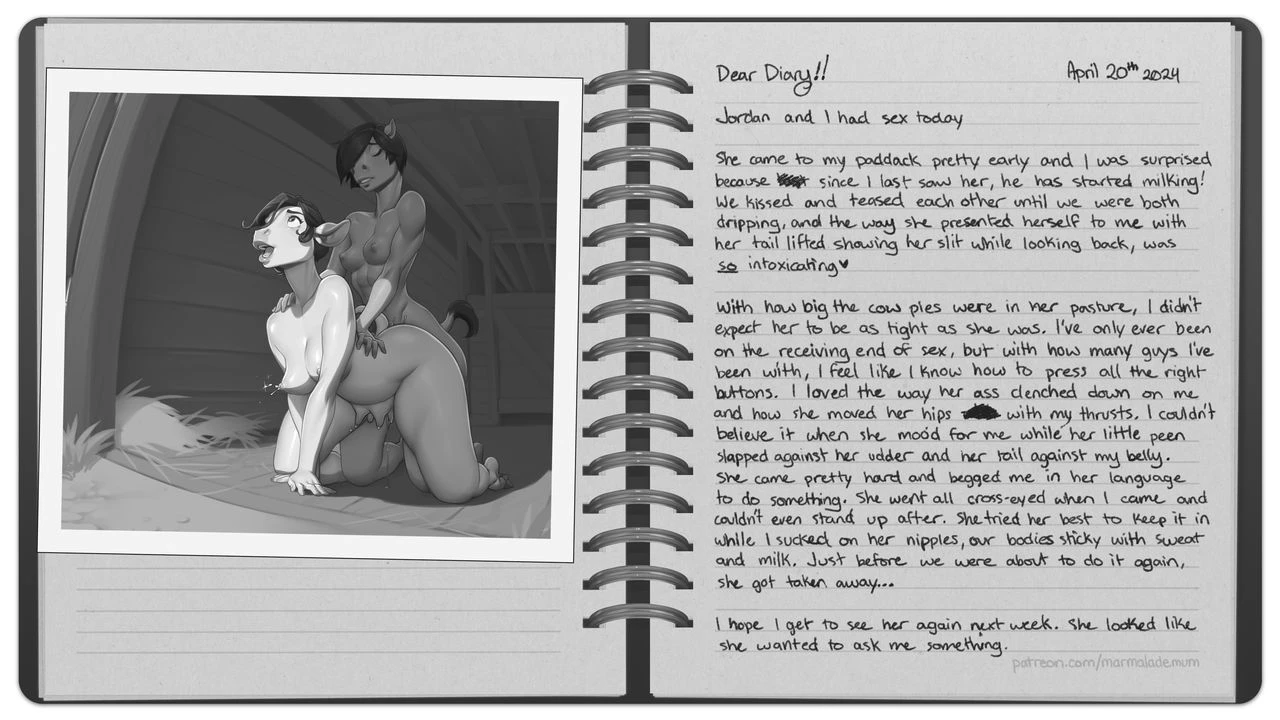 Dear Diary!!
April 20th 2024
Jordan and I had sex today
She came to my paddack pretty early and I was surprised
because since I last saw her, he has started milking!
We kissed and teased each other until we were both
dripping, and the way she presented herself to me with
her tail lifted showing her slit while looking back, was
so intoxicating♥
With how big the cow pies were in her pasture, I didn't
expect her to be as tight as she was. I've only ever been
on the receiving end of sex, but with how many guys I've
been with, I feel like I know how to press all the right
buttons. I loved the way her ass clenched down on me
and how she moved her hips with my thrusts. I couldn't
believe it when she moo'd for me while her little peen
slapped against her udder and her tail against my belly.
She came pretty hard and begged me in her language
to do something. She went all cross-eyed when I came and
couldn't even stand up after. She tried her best to keep it in
while I sucked on her nipples, our bodies sticky with sweat
and milk. Just before we were about to do it again,
she got taken away...
I hope I get to see her again next week. She looked like
she wanted to ask me something.
patreon.com/marmalademum